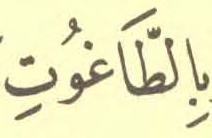 بِالطَّاغُوتِ